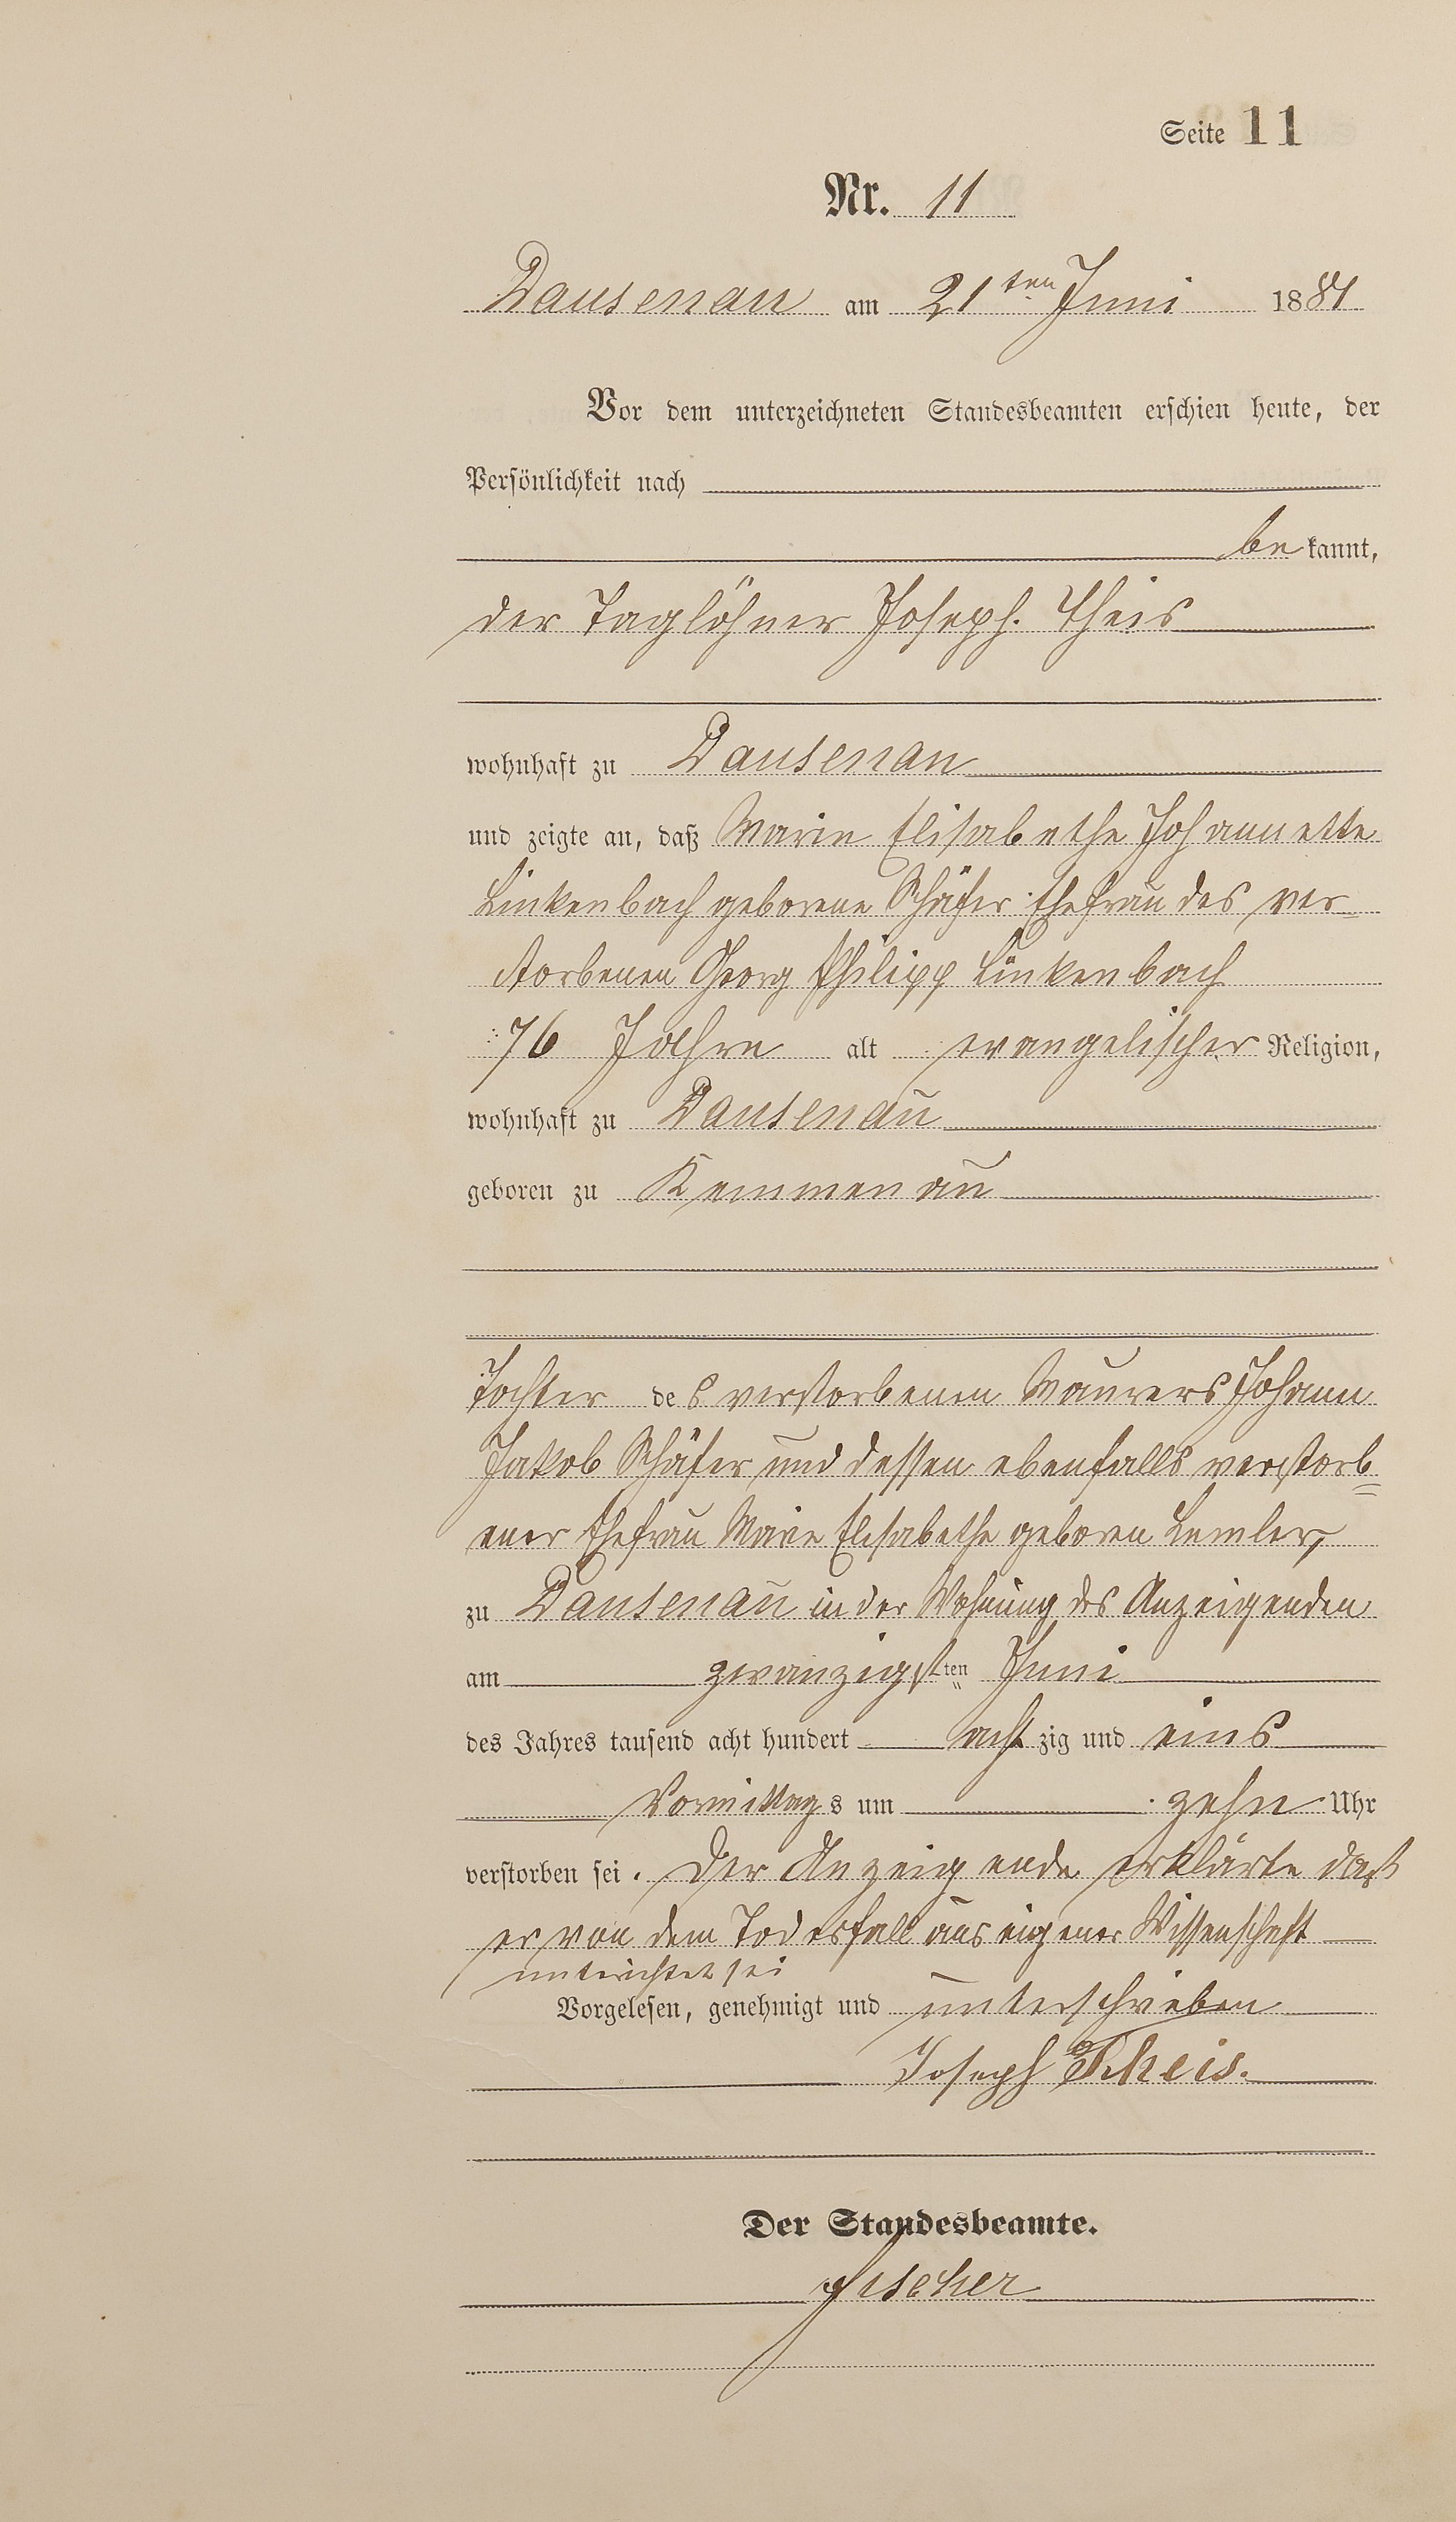 Seite 11
Nr. 11
Dausenau am 21ten Juni 1881
Vor dem unterzeichneten Standesbeamten erschien heute, der
Persönlichkeit nach
bekannt,
der Taglöhner Joseph Theis
wohnhaft zu Dausenau
und zeigte an, daß Marie Elisabethe Johannette
Linkenbach geborene Schäfer Ehefrau des ver-
storbenen Georg Philipp Linkenbach
76 Jahre alt evangelischer Religion,
wohnhaft zu Dausenau
geboren zu Kemmenau
Tochter des verstorbenen Maurers Johann
Jakob Schäfer und dessen ebenfalls verstorb=
ener Ehefrau Marie Elisabethe geboren Lemler,
zu Dausenau in der Wohnung des Anzeigenden
am zwanzigsten Juni
des Jahres tausend acht hundert achtzig und eins
Vormittags um zehn Uhr
verstorben sei. Der Anzeigende erklärte daß
er von dem Todesfall aus eigener Wissenschaft
unterichtet sei
Vorgelesen, genehmigt und unterschrieben
Joseph Theis.
Der Standesbeamte.
Fischer